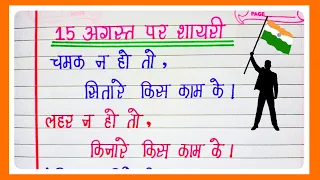 PAGE
15 अगस्त पर शायरी
चमक न हो तो,
सितारे किस काम के।
लहर न हो तो,
किनारे किस काम के।